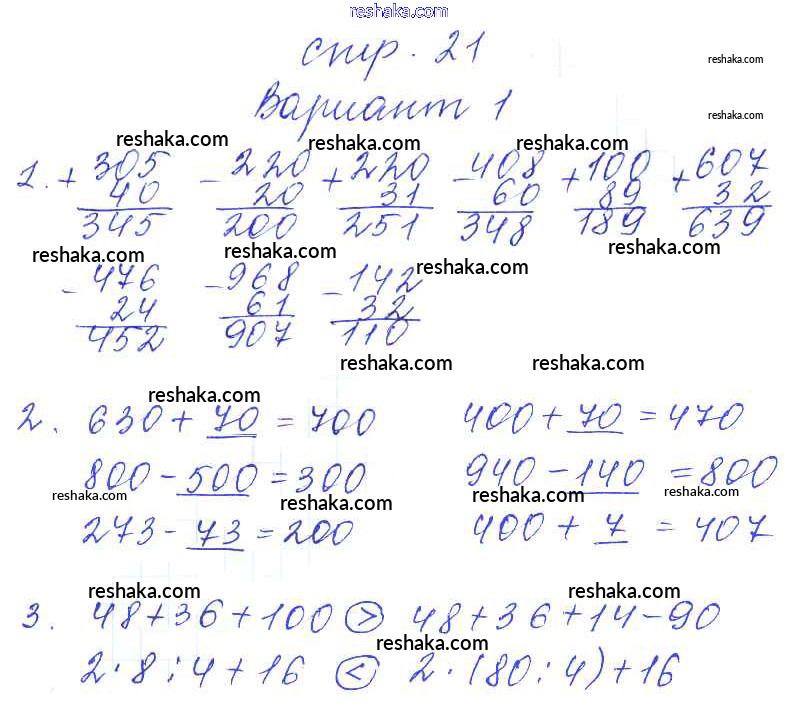 reshaka.com
стр. 21
reshaka.com
Вариант 1
reshaka.com
reshaka.com reshaka.com reshaka.com reshaka.com
1. + 305 - 220 + 220 - 408 + 100 + 607
40 20 31 60 89 32
345 200 251 348 189 639
reshaka.com reshaka.com reshaka.com reshaka.com
- 476 - 968 - 142
24 61 32
452 907 110
reshaka.com reshaka.com
reshaka.com
2. 630 + 70 = 700 400 + 70 = 470
800 - 500 = 300 940 - 140 = 800
reshaka.com reshaka.com reshaka.com reshaka.com
273 - 73 = 200 400 + 7 = 407
reshaka.com reshaka.com
3. 48 + 36 + 100 > 48 + 36 + 14 - 90
reshaka.com
2 · 8 : 4 + 16 < 2 · (80 : 4) + 16